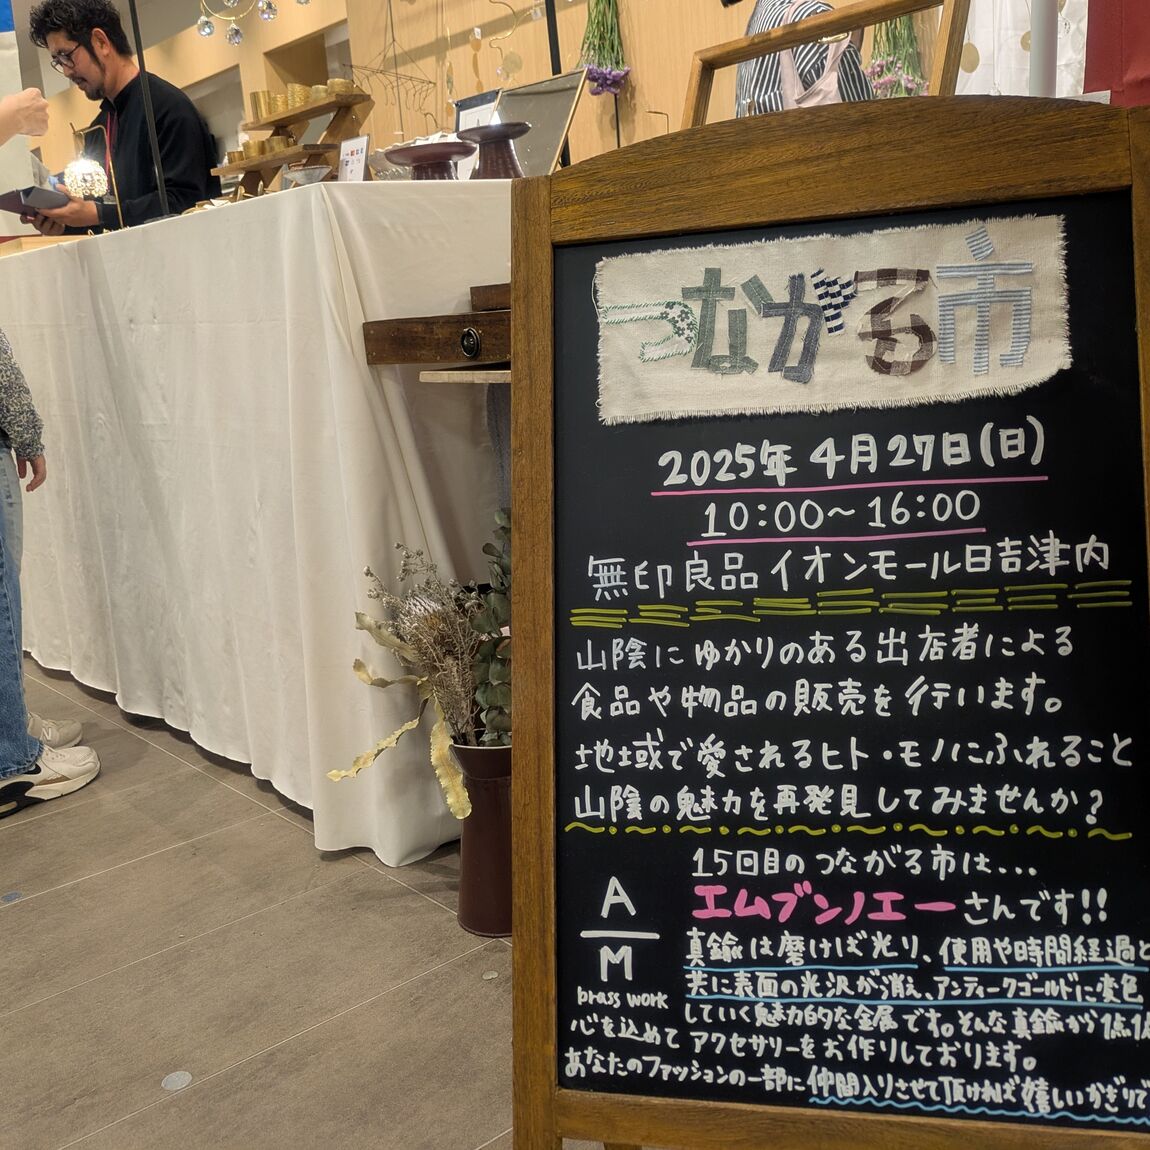 つながる市
2025年4月27日(日)
10:00〜16:00
無印良品イオンモール日吉津内
山陰にゆかりのある出店者による
食品や物品の販売を行います。
地域で愛されるヒト・モノにふれること
山陰の魅力を再発見してみませんか?
15回目のつながる市は...
エムブンノエーさんです!!
A
M
brass work
真鍮は磨けば光り、使用や時間経過と
共に表面の光沢が消え、アンティークゴールドに変色
していく魅力的な金属です。そんな真鍮から
心を込めてアクセサリーをお作りしております。
あなたのファッションの一部に仲間入りさせて頂ければ嬉しいかぎりで